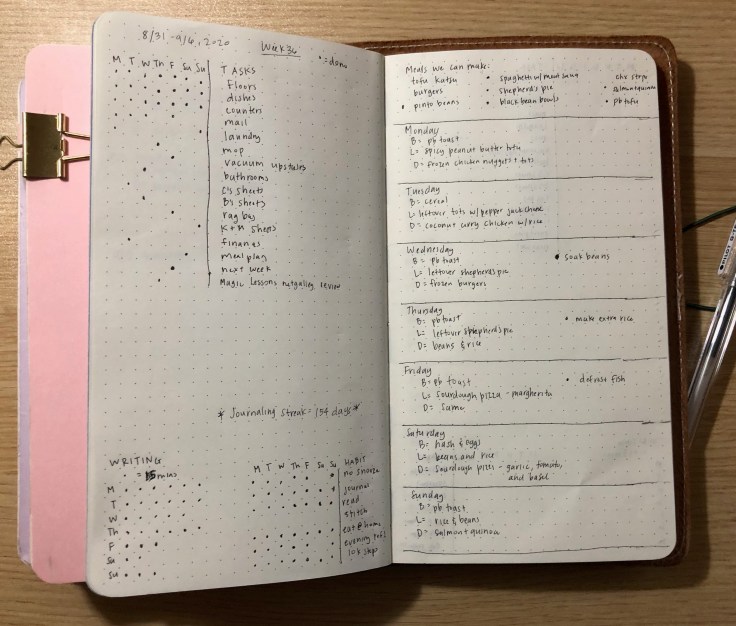 8/31 - 9/6, 2020
Week 36
• = done
M T W Th F Sa Su
TASKS
floors
dishes
counters
mail
laundry
mop
vacuum upstairs
bathrooms
C's sheets
B's sheets
rag bag
K + M sheets
finances
meal plan
next week
Magic Lessons netgalley review
* Journaling streak = 154 days *
WRITING
= 15 mins
M
T
W
Th
F
Sa
Su
M T W Th F Sa Su
HABIT
no snooze
journal
read
stitch
eat @ home
evening
10k step
Meals we can make:
tofu katsu
burgers
• pinto beans
• spaghetti w/ meat sauce
• shepherd's pie
• black bean bowls
chx strips
• salmon + quinoa
• pb tofu
Monday
B = pb toast
L = spicy peanut butter tofu
D = frozen chicken nuggets + tots
Tuesday
B = cereal
L = leftover tots w/ pepper jack cheese
D = coconut curry chicken w/ rice
Wednesday
B = pb toast
• soak beans
L = leftover shepherd's pie
D = frozen burgers
Thursday
B = pb toast
• make extra rice
L = leftover shepherd's pie
D = beans & rice
Friday
B = pb toast
• defrost fish
L = sourdough pizza - margherita
D = same
Saturday
B = hash & eggs
L = beans and rice
D = sourdough pizza - garlic, tomato,
and basil
Sunday
B = pb toast
L = rice & beans
D = salmon + quinoa